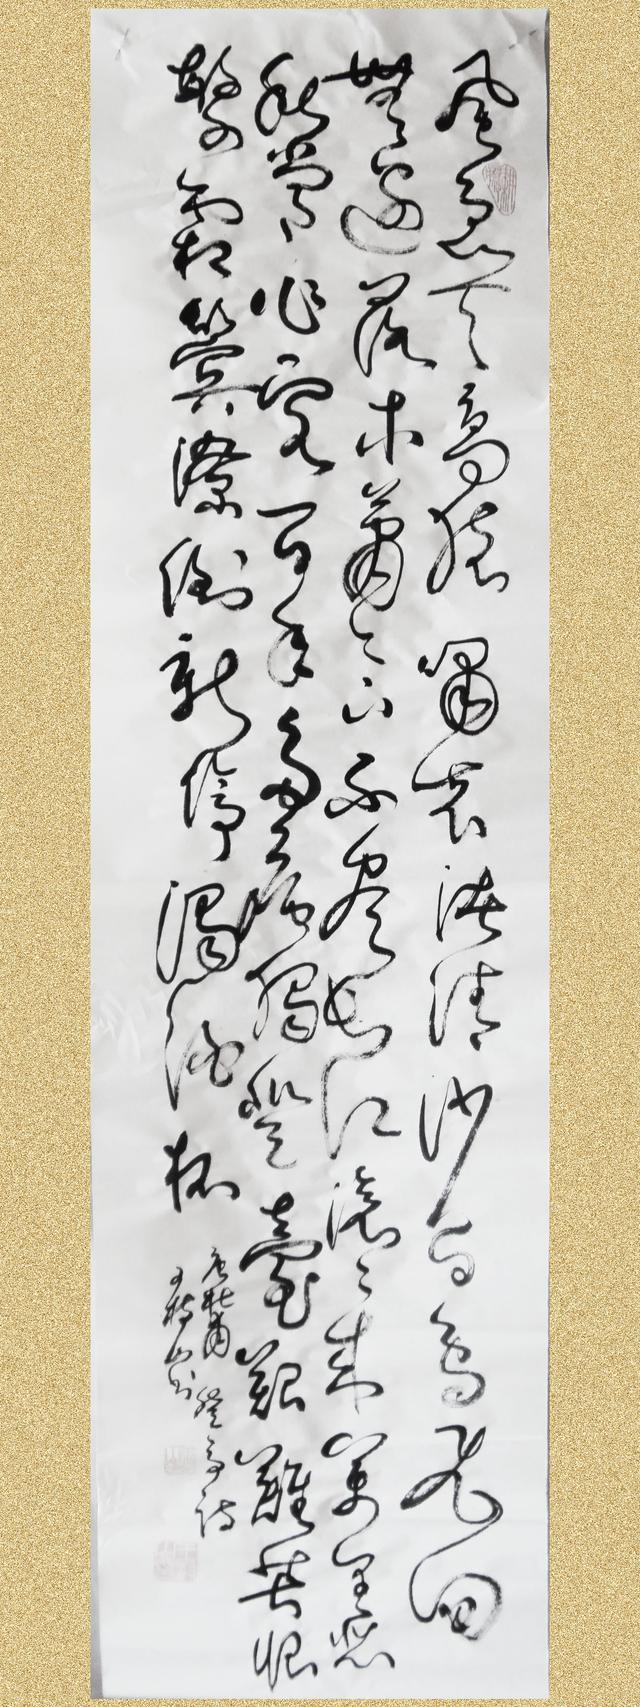 風急天高猿嘯哀渚清沙白鳥飛回
無邊落木蕭々下不盡長江滾々來萬里悲
秋常作客百年多病獨登臺艱難苦恨
繁霜鬢潦倒新停濁酒杯
唐杜甫登高詩